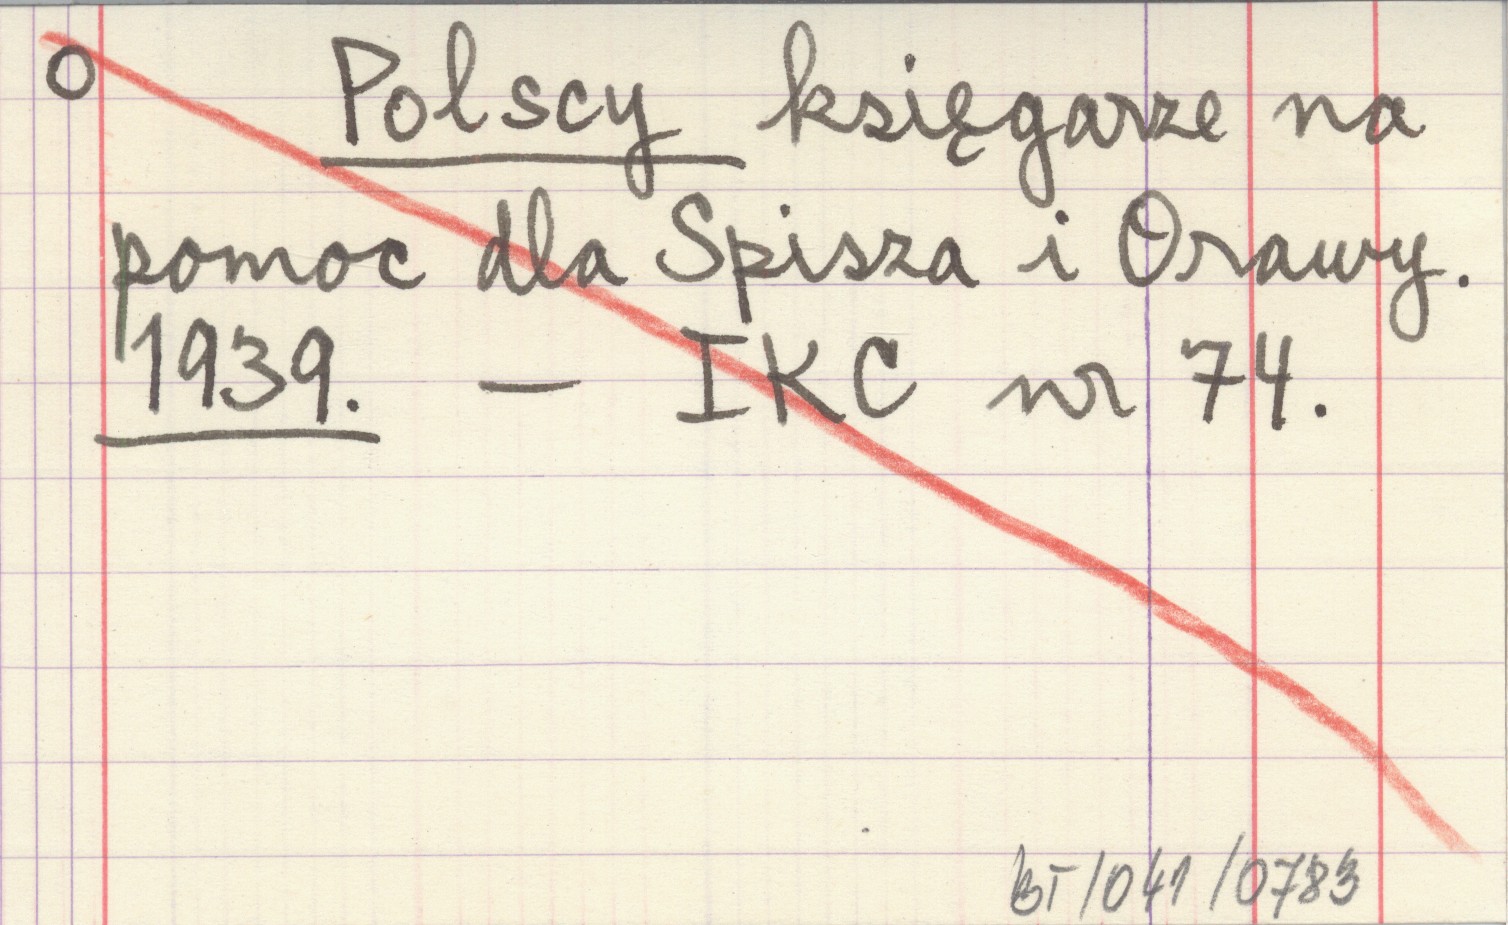 O Polscy księgarze na
pomoc dla Spisza i Orawy.
1939. — IKC nr 74.
BT/041/0783